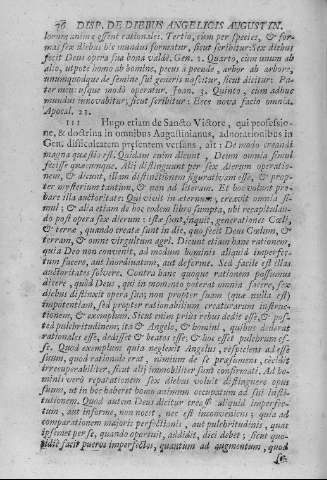 76 DISP. DE DIEBUS ANGELICIS AUGUSTIN.
lorum animæ essent rationales. Tertio, cum per species, & for-
mas sex diebus hic mundus formatur, sicut scribitur: Sex diebus
fecit Deus opera sua bona valde, Gen. 2. Quarto, cum unum ab
alio, utpote homo ab homine, pecus à pecude, arbor ab arbore,
unumquodque de semine sui generis nascitur, sicut dicitur: Pa-
ter meus usque modo operatur, Joan. 5. Quinto, cum adhuc
mundus innovabitur, sicut scribitur: Ecce nova facio omnia,
Apocal. 21.
111 Hugo etiam de Sancto Victore, qui professio-
ne, & doctrina in omnibus Augustinianus, adnotationibus in
Gen. difficultatem præsentem versans, ait: De modo creandi
magna quæstio est. Quidam enim dicunt, Deum omnia simul
fecisse quæcumque. Alij distinguunt per sex dierum operatio-
nem, & dicunt, illam distinctionem figurativam esse, & prop-
ter mysterium tantum, & non ad literam. Et hoc volunt proba-
re illa auctoritate: Qui vivit in æternum, creavit omnia si-
mul; & alia etiam de hoc eodem libro sumpta, ubi recapitulan-
do post opera sex dierum: istæ sunt, inquit, generationes Cœli,
& terræ, quando creata sunt in die, quo fecit Deus Cœlum, &
terram, & omne virgultum agri. Dicunt etiam hanc rationem,
quia Deo non convenit, ad modum hominis aliquid imperfec-
tum facere, aut inordinatum, aut deforme. Sed facile est illas
auctoritates solvere. Contra hanc quoque rationem possumus
dicere, quòd Deus, qui in momento poterat omnia facere, sex
diebus distinxit opera sua; non propter suam (quæ nulla est)
impotentiam, sed propter rationabilium creaturarum instruc-
tionem, & exemplum. Sicut enim prius rebus dedit esse, & pos-
teà pulchritudinem; ita & Angelo, & homini, quibus dederat
rationales esse, dedisset & beatos esse; & hoc esset pulchrum es-
se. Quod exemplum quia neglexit Angelus, respiciens ad esse
suum, quod rationale erat, nimium de se præsumens, cecidit
irrecuperabiliter, sicut alij immobiliter sunt confirmati. Ad ho-
minis verò reparationem sex diebus voluit distinguere opus
suum, ut in hoc haberet homo animum occupatum ad sui insti-
tutionem. Quod autem Deus dicitur creasse aliquid imperfec-
tum, aut informe, non nocet, nec est inconveniens; quia ad
comparationem majoris perfectionis, aut pulchritudinis, quæ
ipsemet per se, quando oportuit, addidit, dici debet; sicut quo-
tidie facit pueros imperfectos, quantum ad augmentum, quod